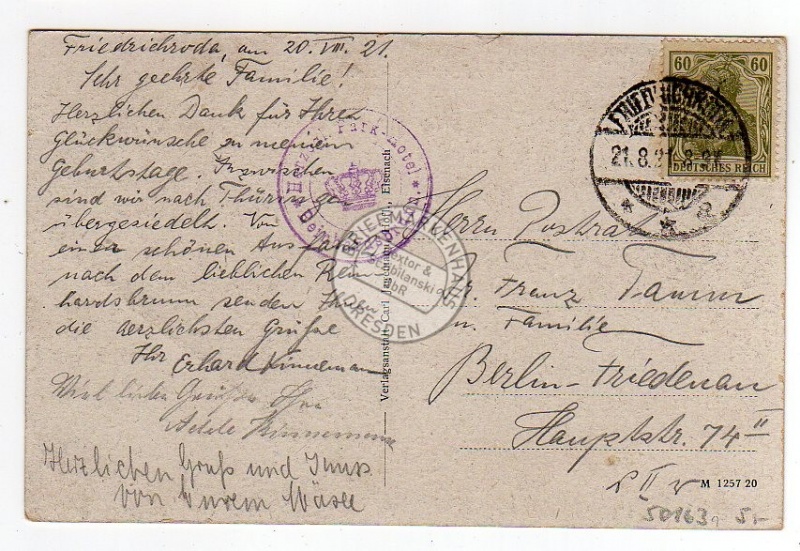 Friedrichroda, am 20. VIII. 21.
Sehr geehrte Familie!
Herzlichen Dank für Ihren
Glückwünsche zu meinem
Geburtstage. Inzwischen
sind wir nach Thüringen
übergesiedelt. Von
einem schönen Ausflug
nach dem lieblichen Rein
hardsbrunn senden Ihnen
die herzlichsten Grüße
Ihr Erhard Kinneman
Viel liebe Grüße Ihre
Adele Kinnemann
Herzlichen Gruß und
von Eurem
Herzogl. Park-Hotel
Verlagsanstalt Carl Eisenach
BRIEFMARKENHAUS
DRESDEN
60 60
DEUTSCHES REICH
21.8.21. 8-9V
Herrn Postrat
Dr. Franz Tamm
u. Familie
Berlin-Friedenau
Hauptstr. 74 II
M 1257 20
50163 5,-